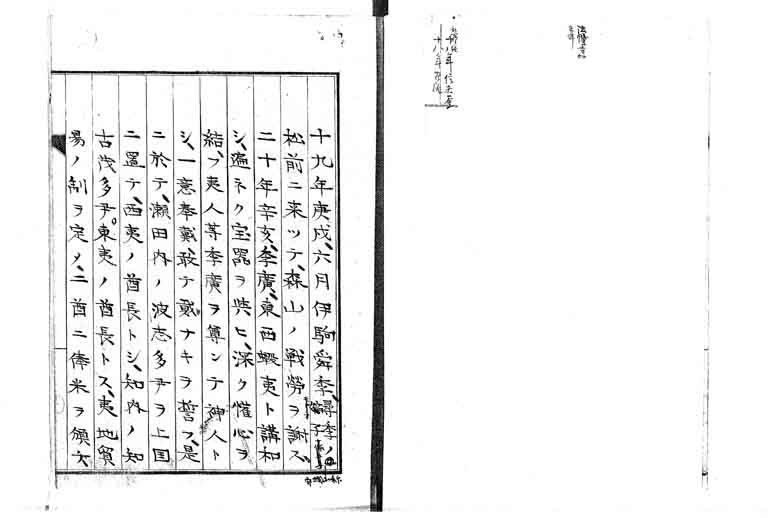 十九年庚戌、六月伊駒舜季、尋季ノ
子
松前ニ来ツテ、森山ノ戦労ヲ謝ズ
二十年辛亥、季廣、東西蝦夷ト講和
シ、遍ネク宝器ヲ與ヒ、深ク懽心ヲ
結ブ、夷人等季廣ヲ尊ンテ神人ト
シ、一意奉戴、敢テ貳ナキヲ誓フ、是
ニ於テ、瀬田内ノ波志多尹ヲ上国
ニ置テ、西夷ノ酋長トシ、知内ノ知
古茂多尹。東夷ノ酋長トス、夷地貿
易ノ制ヲ定メ、二酋ニ俸米ヲ頒ケ